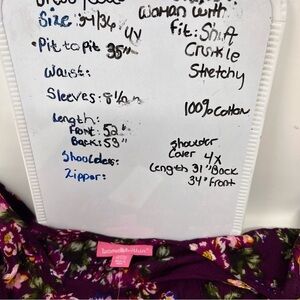 Size: 34/36
4x
Woman with
Fit: Shift
Pit to Pit 35"
Crinkle
Stretchy
Waist:
Sleeves: 8½"
100% Cotton
Length:
Front: 50"
Back: 53"
Shoulders:
Zipper:
Shoulder
Cover 4x
Length 31" Back
34" Front